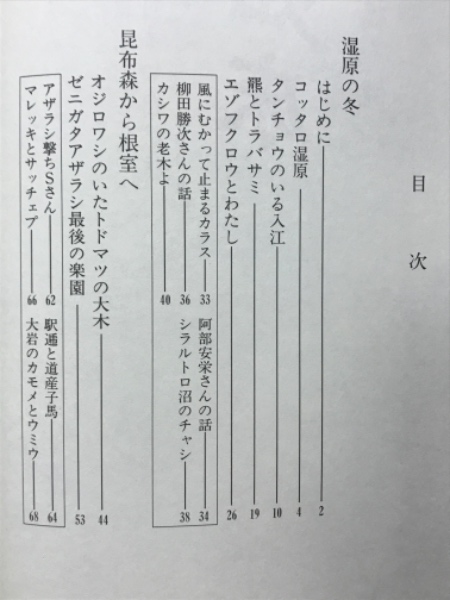 目次
湿原の冬
はじめに 2
コッタロ湿原 4
タンチョウのいる入江 10
熊とトラバサミ 19
エゾフクロウとわたし 26
風にむかって止まるカラス 33
阿部安栄さんの話 34
柳田勝次さんの話 36
シラルトロ沼のチャシ 38
カシワの老木よ 40
昆布森から根室へ
オジロワシのいたトドマツの大木 44
ゼニガタアザラシ最後の楽園 53
アザラシ撃ちSさん 62
駅逓と道産子馬 64
マレッキとサッチェプ 66
大岩のカモメとウミウ 68